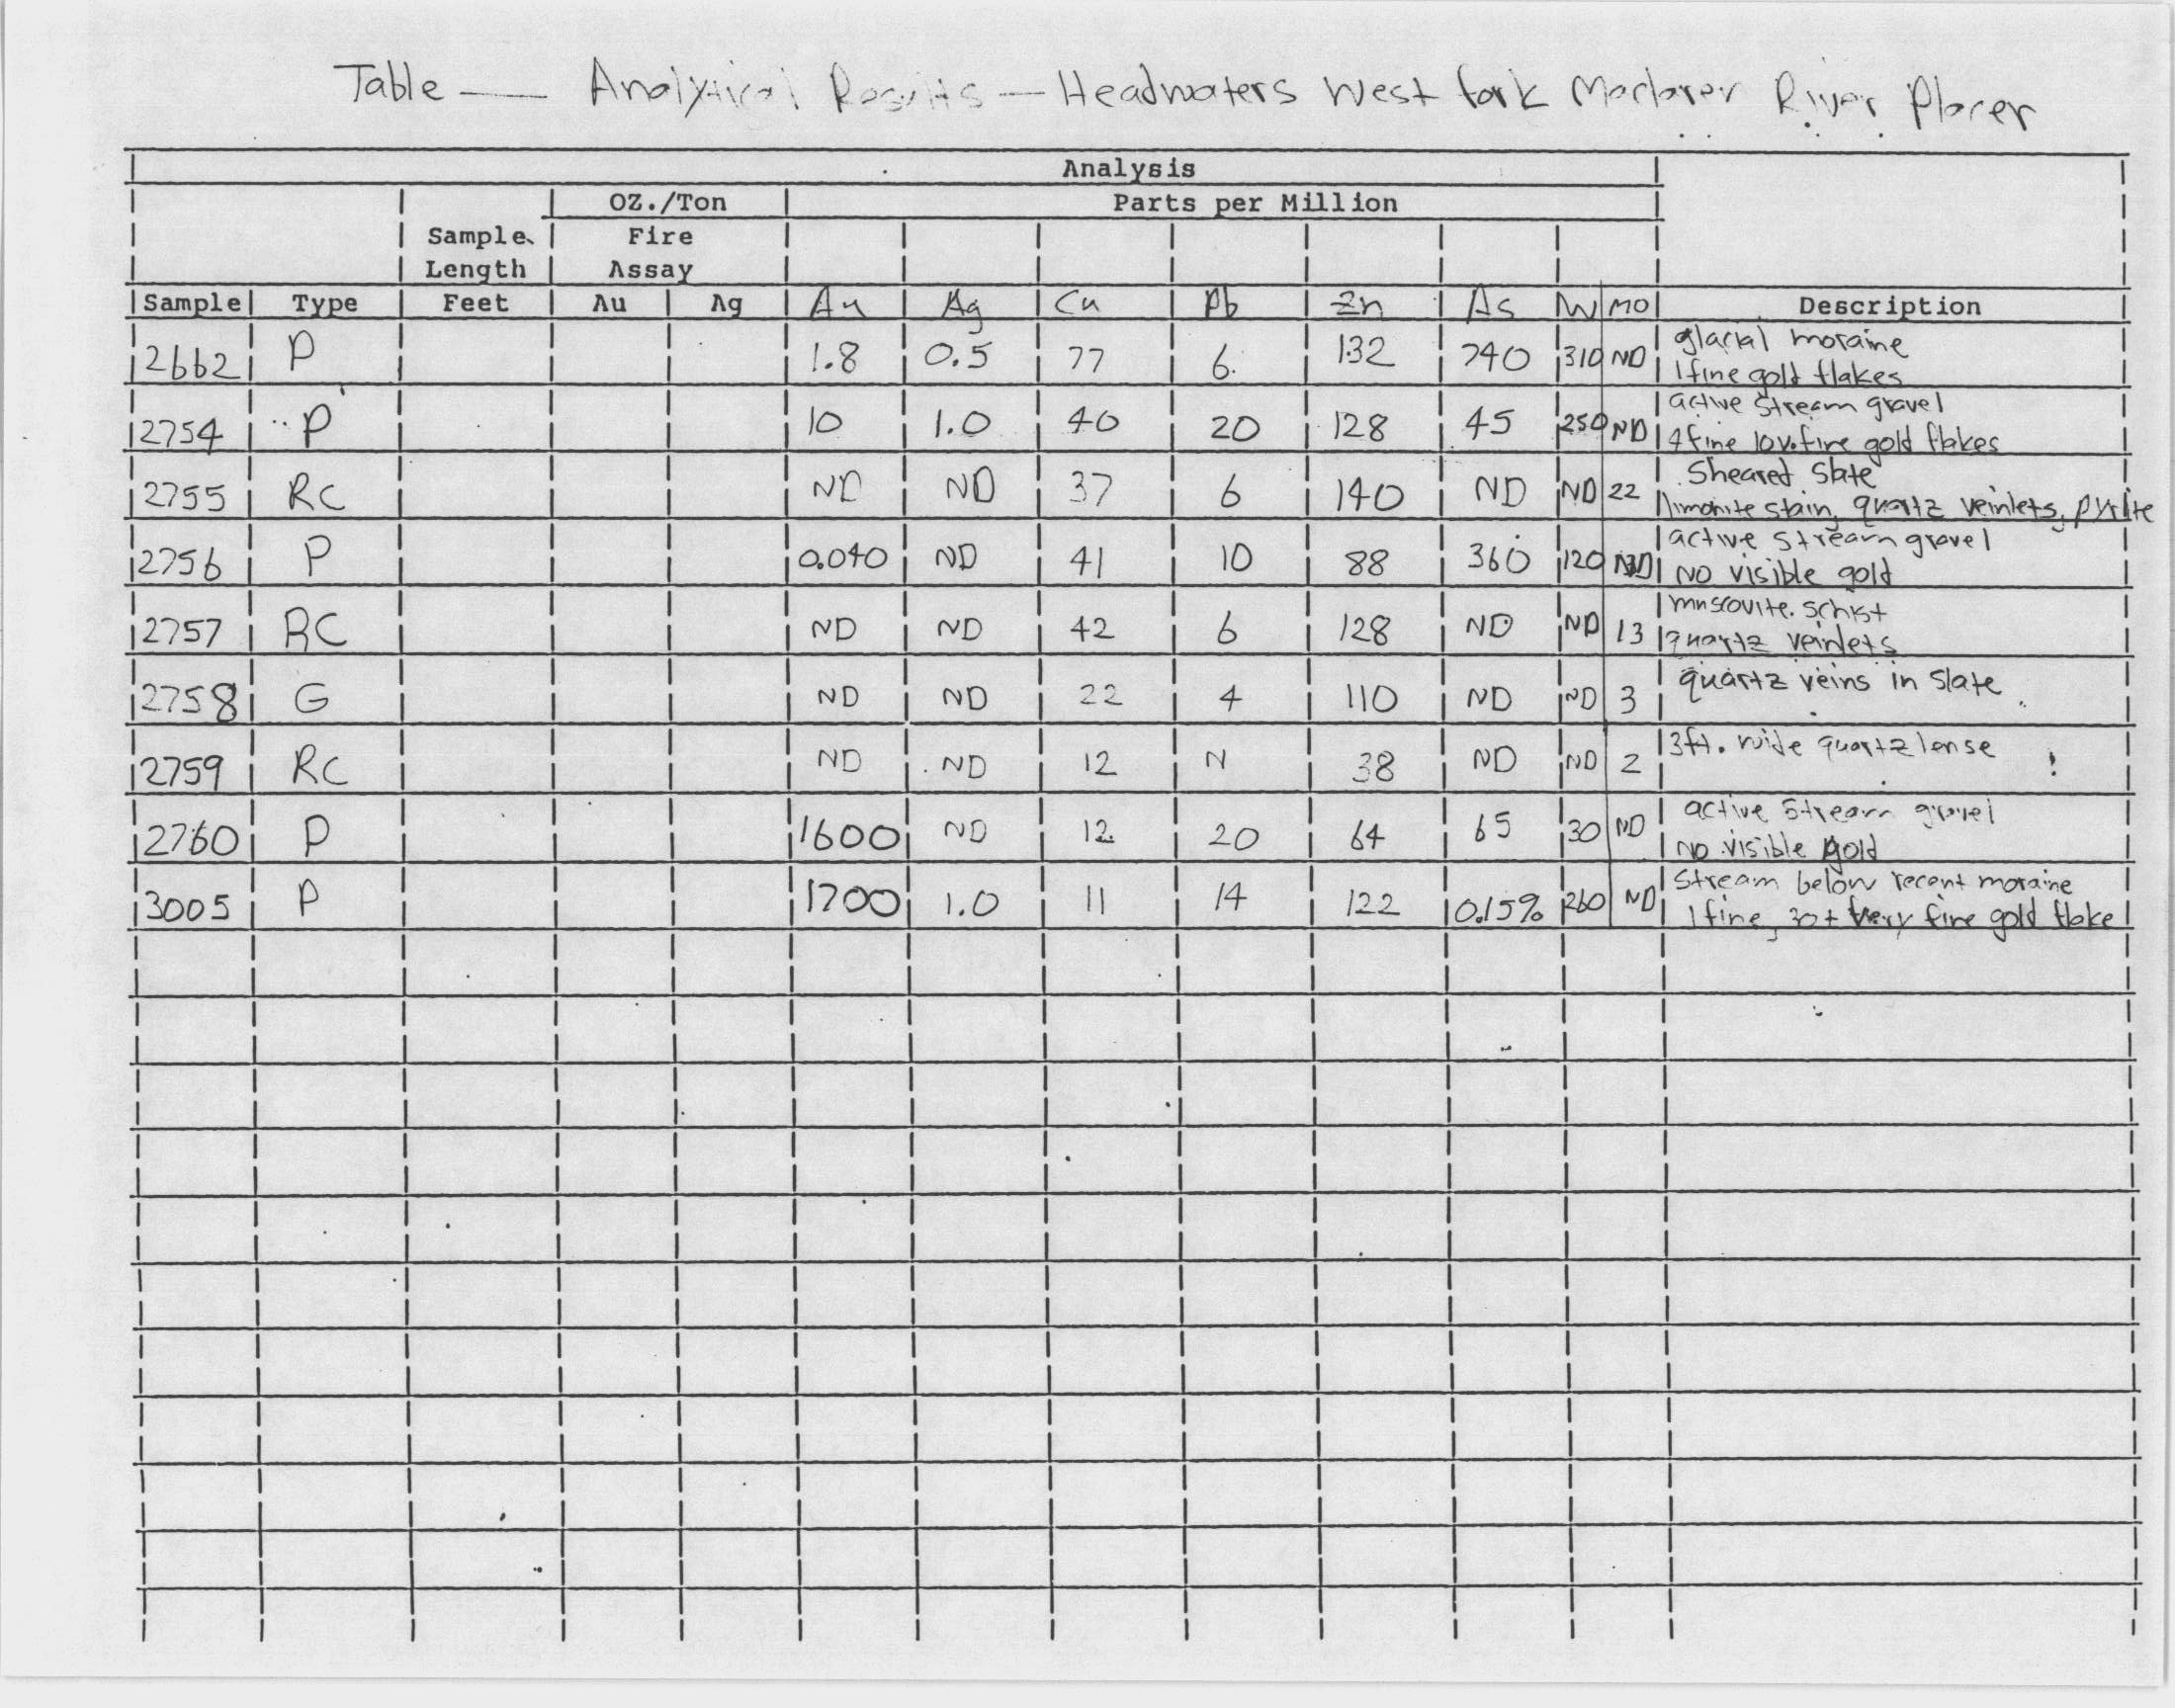 Table — Analytical Results — Headwaters West fork Maclaren River Placer
Analysis
OZ./Ton Parts per Million
Sample Fire
Length Assay
Sample Type Feet Au Ag Au Ag Cu Pb Zn As W MO Description
2662 P 1.8 0.5 77 6 132 740 310 ND glacial moraine
1 fine gold flakes
2754 P 10 1.0 40 20 128 45 250 ND active stream gravel
4 fine 10 v. fine gold flakes
2755 RC ND ND 37 6 140 ND ND 22 Sheared slate
limonite stain, quartz veinlets, pyrite
2756 P 0.040 ND 41 10 88 360 120 ND active stream gravel
NO visible gold
2757 RC ND ND 42 6 128 ND ND 13 muscovite schist
quartz veinlets
2758 G ND ND 22 4 110 ND ND 3 quartz veins in slate
2759 RC ND ND 12 N 38 ND ND 2 3ft. wide quartz lense
2760 P 1600 ND 12 20 64 65 30 ND active stream gravel
no visible gold
3005 P 1700 1.0 11 14 122 0.15% 260 ND Stream below recent moraine
1 fine, 30+ very fine gold flake